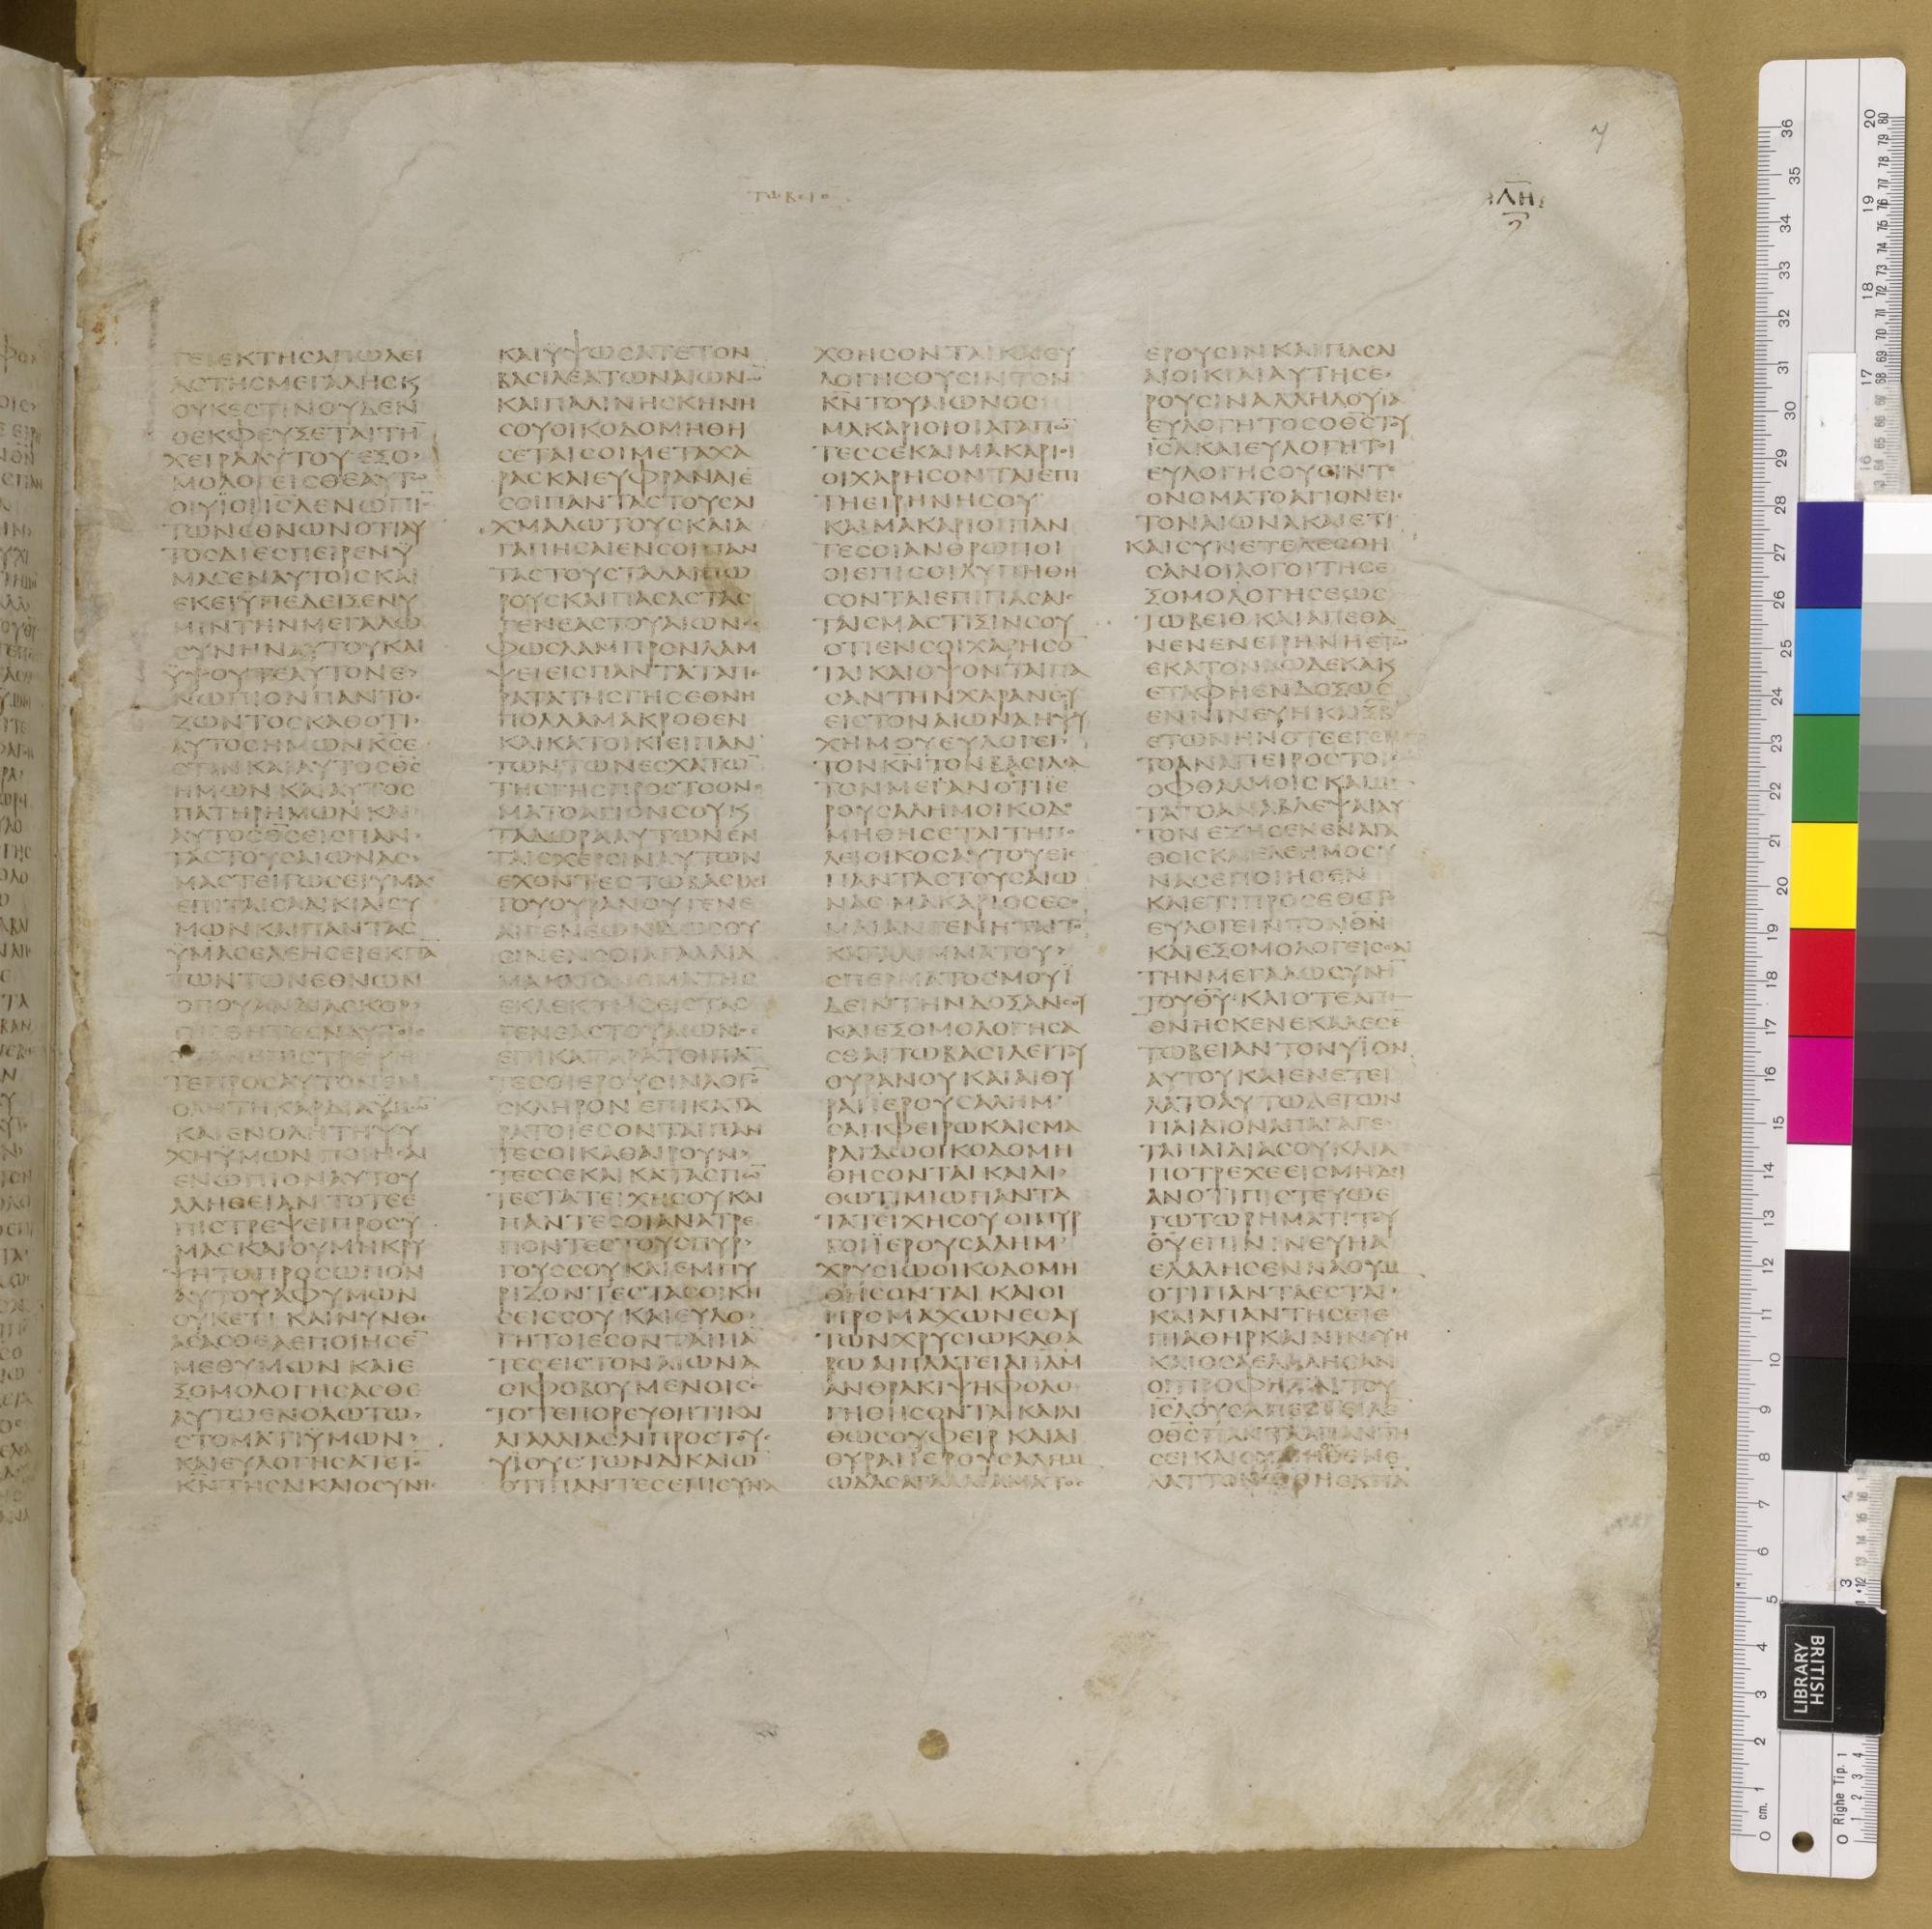 ΤΩΒΕΙΘ
ΛΗ
7
ΓΕΙ ΕΚ ΤΗΣ ΑΠΩΛΕΙ
ΑϹΤΗϹΜΕΓΑΛΗϹΚ
ΟΥΚΕϹΤΙΝΟΥΔΕΝ
ΟΕΚΦΕΥΞΕΤΑΙΤΗ
ΧΕΙΡΑΑΥΤΟΥΕΞΟ
ΜΟΛΟΓΕΙϹΘΕΑΥΤΩ
ΟΙΥΪΟΙΙϹΛΕΝΩΠΙ
ΤΩΝΕΘΝΩΝΟΤΙΑΥ
ΤΟϹΔΙΕϹΠΕΙΡΕΝΫ
ΜΑϹΕΝΑΥΤΟΙϹΚΑΙ
ΕΚΕΙΫΠΕΔΕΙΞΕΝΥ
ΜΙΝΤΗΝΜΕΓΑΛΩ
ϹΥΝΗΝΑΥΤΟΥΚΑΙ
ΫΨΟΥΤΕΑΥΤΟΝΕ
ΝΩΠΙΟΝΠΑΝΤΟ
ΖΩΝΤΟϹΚΑΘΟΤΙ
ΑΥΤΟϹΗΜΩΝΚϹΕ
ϹΤΙΝΚΑΙΑΥΤΟϹΘϹ
ΗΜΩΝΚΑΙΑΥΤΟϹ
ΠΑΤΗΡΗΜΩΝΚΑΙ
ΑΥΤΟϹΘϹΕΙϹΠΑΝ
ΤΑϹΤΟΥϹΑΙΩΝΑϹ
ΜΑϹΤΕΙΓΩϹΕΙΫΜΑ
ΕΠΙΤΑΙϹΑΔΙΚΙΑΙϹΥ
ΜΩΝΚΑΙΠΑΝΤΑϹ
ΫΜΑϹΕΛΕΗϹΕΙΕΚΠΑ
ΤΩΝΤΩΝΕΘΝΩΝ
ΟΠΟΥΑΝΔΙΑϹΚΟΡ
ΟΛΗΤΗΚΑΡΔΙΑΫΜΩ
ΚΑΙΕΝΟΛΗΤΗΨΥ
ΧΗΫΜΩΝΠΟΙΗϹΑΙ
ΕΝΩΠΙΟΝΑΥΤΟΥ
ΑΛΗΘΕΙΑΝΤΟΤΕΕ
ΠΙϹΤΡΕΨΕΙΠΡΟϹΫ
ΜΑϹΚΑΙΟΥΜΗΚΡΥ
ΨΗΤΟΠΡΟϹΩΠΟΝ
ΑΥΤΟΥΑΦΥΜΩΝ
ΟΥΚΕΤΙΚΑΙΝΥΝΘΕ
ΑϹΑϹΘΕΑΕΠΟΙΗϹΕ
ΜΕΘΥΜΩΝΚΑΙΕ
ΞΟΜΟΛΟΓΗϹΑϹΘΕ
ΑΥΤΩΕΝΟΛΩΤΩ
ϹΤΟΜΑΤΙΫΜΩΝ
ΚΑΙΕΥΛΟΓΗϹΑΤΕΤ
ΚΝΤΗϹΔΙΚΑΙΟϹΥΝΗ
ΚΑΙΫΨΩϹΑΤΕΤΟΝ
ΒΑϹΙΛΕΑΤΩΝΑΙΩΝ
ΚΑΙΠΑΛΙΝΗϹΚΗΝΗ
ϹΟΥΟΙΚΟΔΟΜΗΘΗ
ϹΕΤΑΙϹΟΙΜΕΤΑΧΑ
ΡΑϹΚΑΙΕΥΦΡΑΝΑΙΕ
ϹΟΙΠΑΝΤΑϹΤΟΥϹΑΙ
ΧΜΑΛΩΤΟΥϹΚΑΙΑ
ΓΑΠΗϹΑΙΕΝϹΟΙΠΑΝ
ΤΑϹΤΟΥϹΤΑΛΑΙΠΩ
ΡΟΥϹΚΑΙΠΑϹΑϹΤΑϹ
ΓΕΝΕΑϹΤΟΥΑΙΩΝ
ΦΩϹΛΑΜΠΡΟΝΛΑΜ
ΨΕΙΕΙϹΠΑΝΤΑΤΑΠΕ
ΡΑΤΑΤΗϹΓΗϹΕΘΝΗ
ΠΟΛΛΑΜΑΚΡΟΘΕΝ
ΚΑΙΚΑΤΟΙΚΙΕΙΠΑΝ
ΤΩΝΤΩΝΕϹΧΑΤΩ
ΤΗϹΓΗϹΠΡΟϹΤΟΟΝΟ
ΜΑΤΟΑΓΙΟΝϹΟΥΚ
ΤΑΔΩΡΑΑΥΤΩΝΕΝ
ΤΑΙϹΧΕΡϹΙΝΑΥΤΩΝ
ΕΧΟΝΤΕϹΤΩΒΑϹΙΛΕΙ
ΤΟΥΟΥΡΑΝΟΥΓΕΝΕ
ΑΙΓΕΝΕΩΝΔΩϹΟΥ
ϹΙΝΕΝϹΟΙΑΓΑΛΛΙΑ
ΕΚΛΕΚΤΗϹΕΙϹΤΑϹ
ΓΕΝΕΑϹΤΟΥΑΙΩΝΟϹ
ΕΠΙΚΑΤΑΡΑΤΟΙΠΑ
ΤΕϹΟΙΕΡΟΥϹΙΝΛΟΓΟ
ϹΚΛΗΡΟΝΕΠΙΚΑΤΑ
ΡΑΤΟΙΕϹΟΝΤΑΙΠΑΝ
ΤΕϹΟΙΚΑΘΑΙΡΟΥΝ
ΤΕϹϹΕΚΑΙΚΑΤΑϹΠΩ
ΤΕϹΤΑΤΕΙΧΗϹΟΥΚΑΙ
ΠΑΝΤΕϹΟΙΑΝΑΤΡΕ
ΠΟΝΤΕϹΤΟΥϹΠΥΡ
ΓΟΥϹϹΟΥΚΑΙΕΜΠΥ
ΡΙΖΟΝΤΕϹΤΑϹΟΙΚΗ
ϹΕΙϹϹΟΥΚΑΙΕΥΛΟ
ΓΗΤΟΙΕϹΟΝΤΑΙΠΑ
ΤΕϹΕΙϹΤΟΝΑΙΩΝΑ
ΟΙΦΟΒΟΥΜΕΝΟΙϹΕ
ΤΟΤΕΠΟΡΕΥΘΗΤΙΚΑΙ
ΑΓΑΛΛΙΑϹΑΙΠΡΟϹΤΟΥ
ΥΙΟΥϹΤΩΝΔΙΚΑΙΩ
ΟΤΙΠΑΝΤΕϹΕΠΙϹΥΝΑ
ΧΘΗϹΟΝΤΑΙΚΑΙΕΥ
ΛΟΓΗϹΟΥϹΙΝΤΟΝ
ΚΝΤΟΥΑΙΩΝΟϹ
ΜΑΚΑΡΙΟΙΟΙΑΓΑΠΩ
ΤΕϹϹΕΚΑΙΜΑΚΑΡΙΟΙ
ΟΙΧΑΡΗϹΟΝΤΑΙΕΠΙ
ΤΗΕΙΡΗΝΗϹΟΥ
ΚΑΙΜΑΚΑΡΙΟΙΠΑΝ
ΤΕϹΟΙΑΝΘΡΩΠΟΙ
ΟΙΕΠΙϹΟΙΛΥΠΗΘΗ
ϹΟΝΤΑΙΕΠΙΠΑϹΑΙ
ΤΑΙϹΜΑϹΤΙΞΙΝϹΟΥ
ΟΤΙΕΝϹΟΙΧΑΡΗϹΟ
ΤΑΙΚΑΙΟΨΟΝΤΑΙΠΑ
ϹΑΝΤΗΝΧΑΡΑΝϹΟΥ
ΕΙϹΤΟΝΑΙΩΝΑΗΨΥ
ΧΗΜΟΥΕΥΛΟΓΕΙ
ΤΟΝΚΝΤΟΝΒΑϹΙΛΕΑ
ΤΟΝΜΕΓΑΝΟΤΙΪΕ
ΡΟΥϹΑΛΗΜΟΙΚΟΔΟ
ΜΗΘΗϹΕΤΑΙΤΗΠΟ
ΛΕΙΟΙΚΟϹΑΥΤΟΥΕΙϹ
ΠΑΝΤΑϹΤΟΥϹΑΙΩ
ΝΑϹΜΑΚΑΡΙΟϹΕϹΟ
ΜΑΙΑΝΓΕΝΗΤΑΙΤΟ
ΚΑΤΑΛΙΜΜΑΤΟΥ
ϹΠΕΡΜΑΤΟϹΜΟΥΪ
ΔΕΙΝΤΗΝΔΟΞΑΝϹΟΥ
ΚΑΙΕΞΟΜΟΛΟΓΗϹΑ
ϹΘΑΙΤΩΒΑϹΙΛΕΙΤΟΥ
ΟΥΡΑΝΟΥΚΑΙΑΙΘΥ
ΡΑΙΪΕΡΟΥϹΑΛΗΜ
ϹΑΠΦΕΙΡΩΚΑΙϹΜΑ
ΡΑΓΔΩΟΙΚΟΔΟΜΗ
ΘΗϹΟΝΤΑΙΚΑΙΛΙ
ΘΩΤΙΜΙΩΠΑΝΤΑ
ΤΑΤΕΙΧΗϹΟΥΟΙΠΥΡ
ΓΟΙΪΕΡΟΥϹΑΛΗΜ
ΧΡΥϹΙΩΟΙΚΟΔΟΜΗ
ΘΗϹΟΝΤΑΙΚΑΙΟΙ
ΠΡΟΜΑΧΩΝΕϹΑΥ
ΤΩΝΧΡΥϹΙΩΚΑΘΑ
ΡΩΑΙΠΛΑΤΕΙΑΙΙΛΗΜ
ΑΝΘΡΑΚΙΨΗΦΟΛΟ
ΓΗΘΗϹΟΝΤΑΙΚΑΙΛΙ
ΘΩϹΟΥΦΕΙΡΚΑΙΑΙ
ΘΥΡΑΙΙΕΡΟΥϹΑΛΗΜ
ΩΔΑϹΑΓΑΛΛΙΑΜΑΤΟϹ
ΕΡΟΥϹΙΝΚΑΙΠΑϹΑΙ
ΑΙΟΙΚΙΑΙΑΥΤΗϹΕ
ΡΟΥϹΙΝΑΛΛΗΛΟΥΙΑ
ΕΥΛΟΓΗΤΟϹΟΘϹΤΟΥ
ΙϹΛΚΑΙΕΥΛΟΓΗΤΟΙ
ΕΥΛΟΓΗϹΟΥϹΙΝΤΟ
ΟΝΟΜΑΤΟΑΓΙΟΝΕΙϹ
ΤΟΝΑΙΩΝΑΚΑΙΕΤΙ
ΚΑΙϹΥΝΕΤΕΛΕϹΘΗ
ϹΑΝΟΙΛΟΓΟΙΤΗϹΕ
ΞΟΜΟΛΟΓΗϹΕΩϹ
ΤΩΒΕΙΘΚΑΙΑΠΕΘΑ
ΝΕΝΕΝΕΙΡΗΝΗΕΤΩ
ΕΚΑΤΟΝΔΩΔΕΚΑΚ
ΕΤΑΦΗΕΝΔΟΞΩϹ
ΕΝΝΙΝΕΥΗΚΑΙΞΒ
ΕΤΩΝΗΝΟΤΕΕΓΕΝΕ
ΤΟΑΝΑΠΕΙΡΟϹΤΟΙϹ
ΟΦΘΑΛΜΟΙϹΚΑΙΜΕ
ΤΑΤΟΑΝΑΒΛΕΨΑΙΑΥ
ΤΟΝΕΖΗϹΕΝΕΝΑΓΑ
ΘΟΙϹΚΑΙΕΛΕΗΜΟϹΥ
ΝΑϹΕΠΟΙΗϹΕΝ
ΚΑΙΕΤΙΠΡΟϹΕΘΕΤΟ
ΕΥΛΟΓΕΙΝΤΟΝΘΝ
ΚΑΙΕΞΟΜΟΛΟΓΕΙϹΘΑΙ
ΤΗΝΜΕΓΑΛΩϹΥΝΗ
ΤΟΥΘΥΚΑΙΟΤΕΑΠΕ
ΘΝΗϹΚΕΝΕΚΑΛΕϹΕ
ΤΩΒΕΙΑΝΤΟΝΥΪΟΝ
ΑΥΤΟΥΚΑΙΕΝΕΤΕΙ
ΛΑΤΟΑΥΤΩΛΕΓΩΝ
ΠΑΙΔΙΟΝΑΠΑΓΑΓΕ
ΤΑΠΑΙΔΙΑϹΟΥΚΑΙΑ
ΠΟΤΡΕΧΕΕΙϹΜΗΔΙ
ΑΝΟΤΙΠΙϹΤΕΥΩΕ
ΓΩΤΩΡΗΜΑΤΙΤΟΥ
ΘΥΕΠΙΝΙΝΕΥΗΑ
ΕΛΑΛΗϹΕΝΝΑΟΥΜ
ΟΤΙΠΑΝΤΑΕϹΤΑΙ
ΚΑΙΑΠΑΝΤΗϹΕΙΕ
ΠΙΑΘΗΡΚΑΙΝΙΝΕΥΗ
ΚΑΙΟϹΑΕΛΑΛΗϹΑΝ
ΟΙΠΡΟΦΗΤΑΙΤΟΥ
ΙϹΛΟΥϹΑΠΕϹΤΕΙΛΕ
ΟΘϹΠΑΝΤΑΑΠΑΝΤΗ